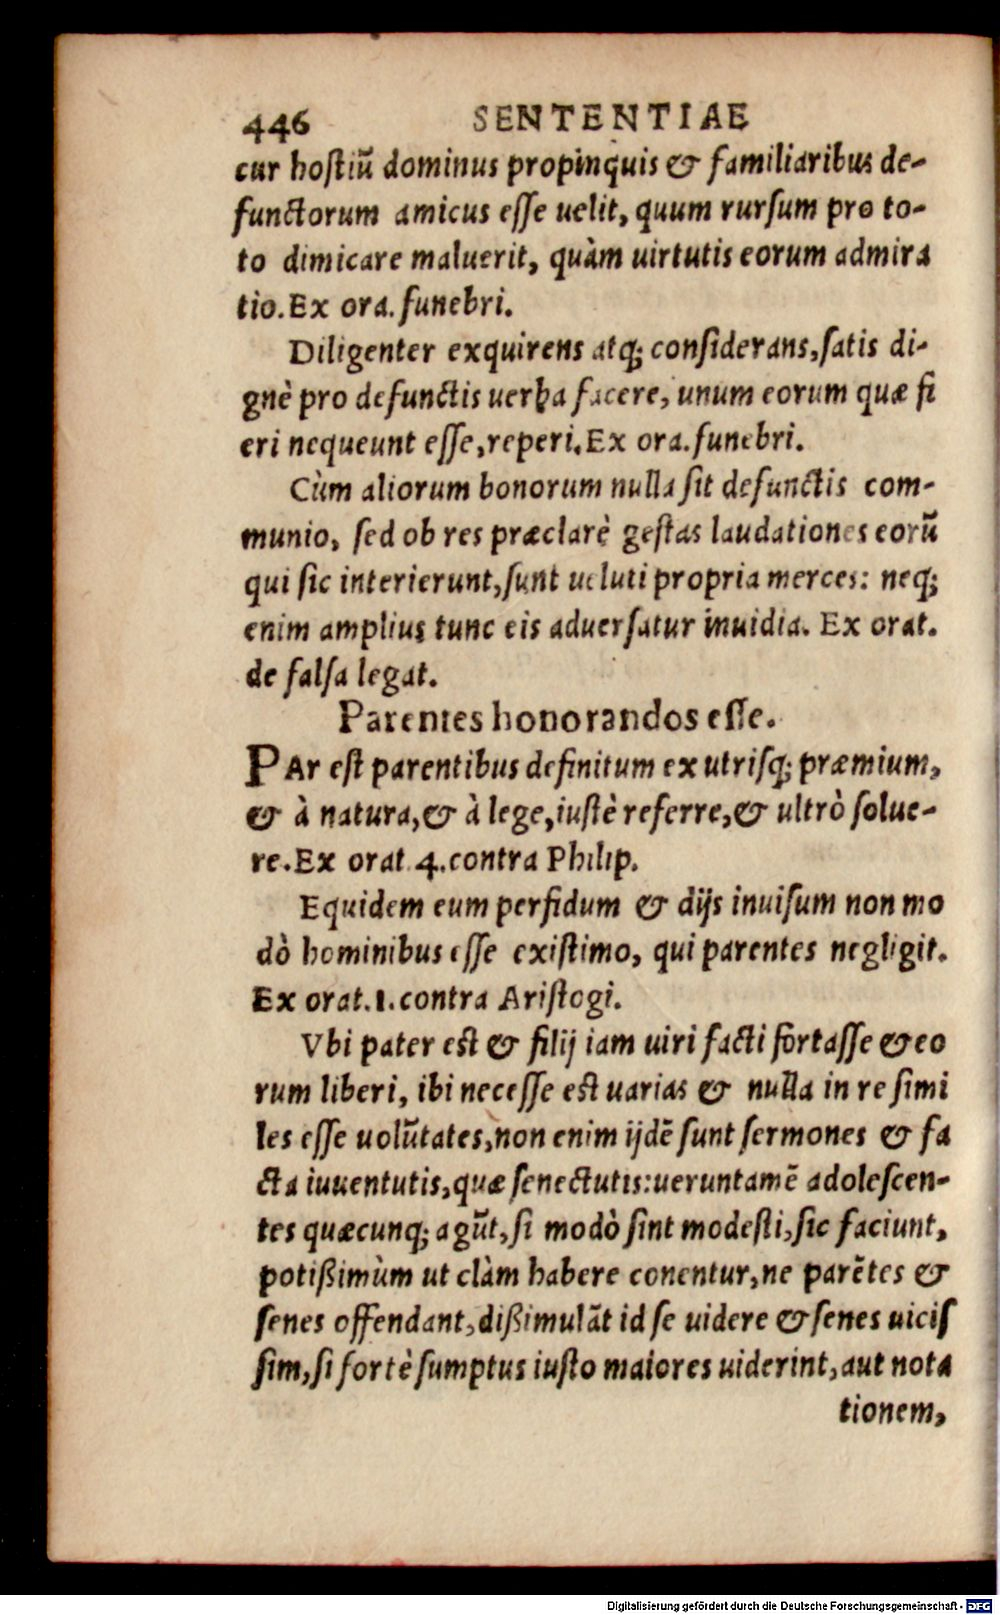 446 SENTENTIAE
cur hostiũ dominus propinquis & familiaribus de-
functorum amicus esse uelit, quum rursum pro to-
to dimicare maluerit, quàm uirtutis eorum admira
tio. Ex ora. funebri.
Diligenter exquirens atq; considerans, satis di-
gnè pro defunctis uerba facere, unum eorum quæ fi
eri nequeunt esse, reperi. Ex ora. funebri.
Cùm aliorum bonorum nulla sit defunctis com-
munio, sed ob res præclarè gestas laudationes eorũ
qui sic interierunt, sunt ueluti propria merces: neq;
enim amplius tunc eis aduersatur inuidia. Ex orat.
de falsa legat.
Parentes honorandos esse.
PAr est parentibus definitum ex utrisq; præmium,
& à natura, & à lege, iustè referre, & ultrò solue-
re. Ex orat. 4. contra Philip.
Equidem eum perfidum & dijs inuisum non mo
dò hominibus esse existimo, qui parentes negligit.
Ex orat. 1. contra Aristogi.
Vbi pater est & filij iam uiri facti fortasse & eo
rum liberi, ibi necesse est uarias & nulla in re simi
les esse uolũtates, non enim ijdẽ sunt sermones & fa
cta iuuentutis, quæ senectutis: ueruntamẽ adolescen-
tes quæcunq; agũt, si modò sint modesti, sic faciunt,
potißimùm ut clàm habere conentur, ne parẽtes &
senes offendant, dißimulãt id se uidere & senes uicis
sim, si fortè sumptus iusto maiores uiderint, aut nota
tionem,
Digitalisierung gefördert durch die Deutsche Forschungsgemeinschaft - DFG